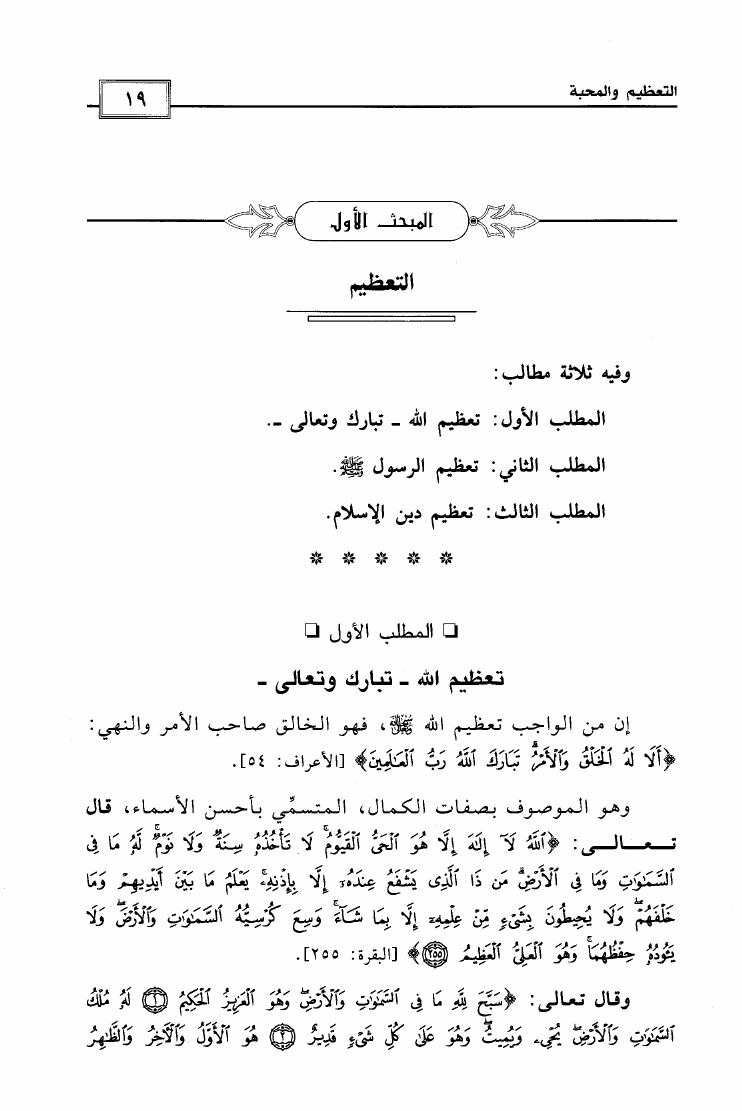 التعظيم والمحبة
١٩
المبحث الأول
التعظيم
وفيه ثلاثة مطالب:
المطلب الأول: تعظيم الله ـ تبارك وتعالى ـ.
المطلب الثاني: تعظيم الرسول ﷺ.
المطلب الثالث: تعظيم دين الإسلام.
* * * * *
❏ المطلب الأول ❏
تعظيم الله ـ تبارك وتعالى ـ
إن من الواجب تعظيم الله ﷻ، فهو الخالق صاحب الأمر والنهي:
﴿أَلَا لَهُ ٱلْخَلْقُ وَٱلْأَمْرُ ۗ تَبَارَكَ ٱللَّهُ رَبُّ ٱلْعَٰلَمِينَ﴾ [الأعراف: ٥٤].
وهو الموصوف بصفات الكمال، المتسمِّي بأحسن الأسماء، قال
تعـالـى: ﴿ٱللَّهُ لَآ إِلَٰهَ إِلَّا هُوَ ٱلْحَىُّ ٱلْقَيُّومُ ۚ لَا تَأْخُذُهُۥ سِنَةٌ وَلَا نَوْمٌ ۚ لَّهُۥ مَا فِى
ٱلسَّمَٰوَٰتِ وَمَا فِى ٱلْأَرْضِ ۗ مَن ذَا ٱلَّذِى يَشْفَعُ عِندَهُۥٓ إِلَّا بِإِذْنِهِۦ ۚ يَعْلَمُ مَا بَيْنَ أَيْدِيهِمْ وَمَا
خَلْفَهُمْ ۖ وَلَا يُحِيطُونَ بِشَىْءٍ مِّنْ عِلْمِهِۦٓ إِلَّا بِمَا شَآءَ ۚ وَسِعَ كُرْسِيُّهُ ٱلسَّمَٰوَٰتِ وَٱلْأَرْضَ ۖ وَلَا
يَـُٔودُهُۥ حِفْظُهُمَا ۚ وَهُوَ ٱلْعَلِىُّ ٱلْعَظِيمُ ﴿٢٥٥﴾﴾ [البقرة: ٢٥٥].
وقال تعالى: ﴿سَبَّحَ لِلَّهِ مَا فِى ٱلسَّمَٰوَٰتِ وَٱلْأَرْضِ ۖ وَهُوَ ٱلْعَزِيزُ ٱلْحَكِيمُ ﴿١﴾ لَهُۥ مُلْكُ
ٱلسَّمَٰوَٰتِ وَٱلْأَرْضِ ۖ يُحْىِۦ وَيُمِيتُ ۖ وَهُوَ عَلَىٰ كُلِّ شَىْءٍ قَدِيرٌ ﴿٢﴾ هُوَ ٱلْأَوَّلُ وَٱلْءَاخِرُ وَٱلظَّٰهِرُ